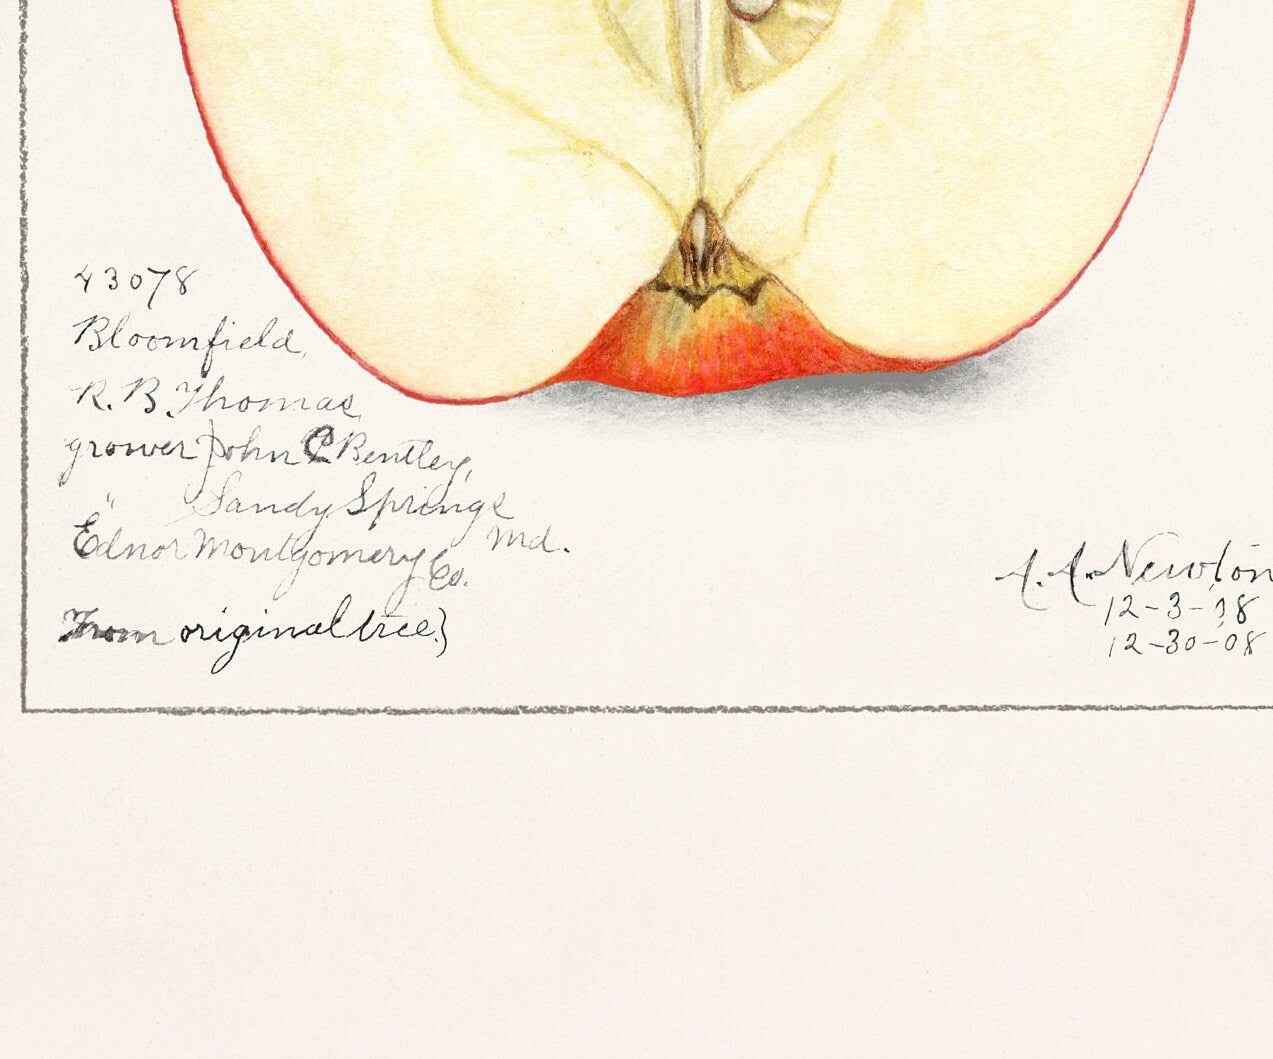 43078
Bloomfield,
R. B. Thomas,
grower John C Bentley,
" Sandy Springs
Md.
Ednor Montgomery Co.
From original tree}
A. A. Newton
12-3-08
12-30-08